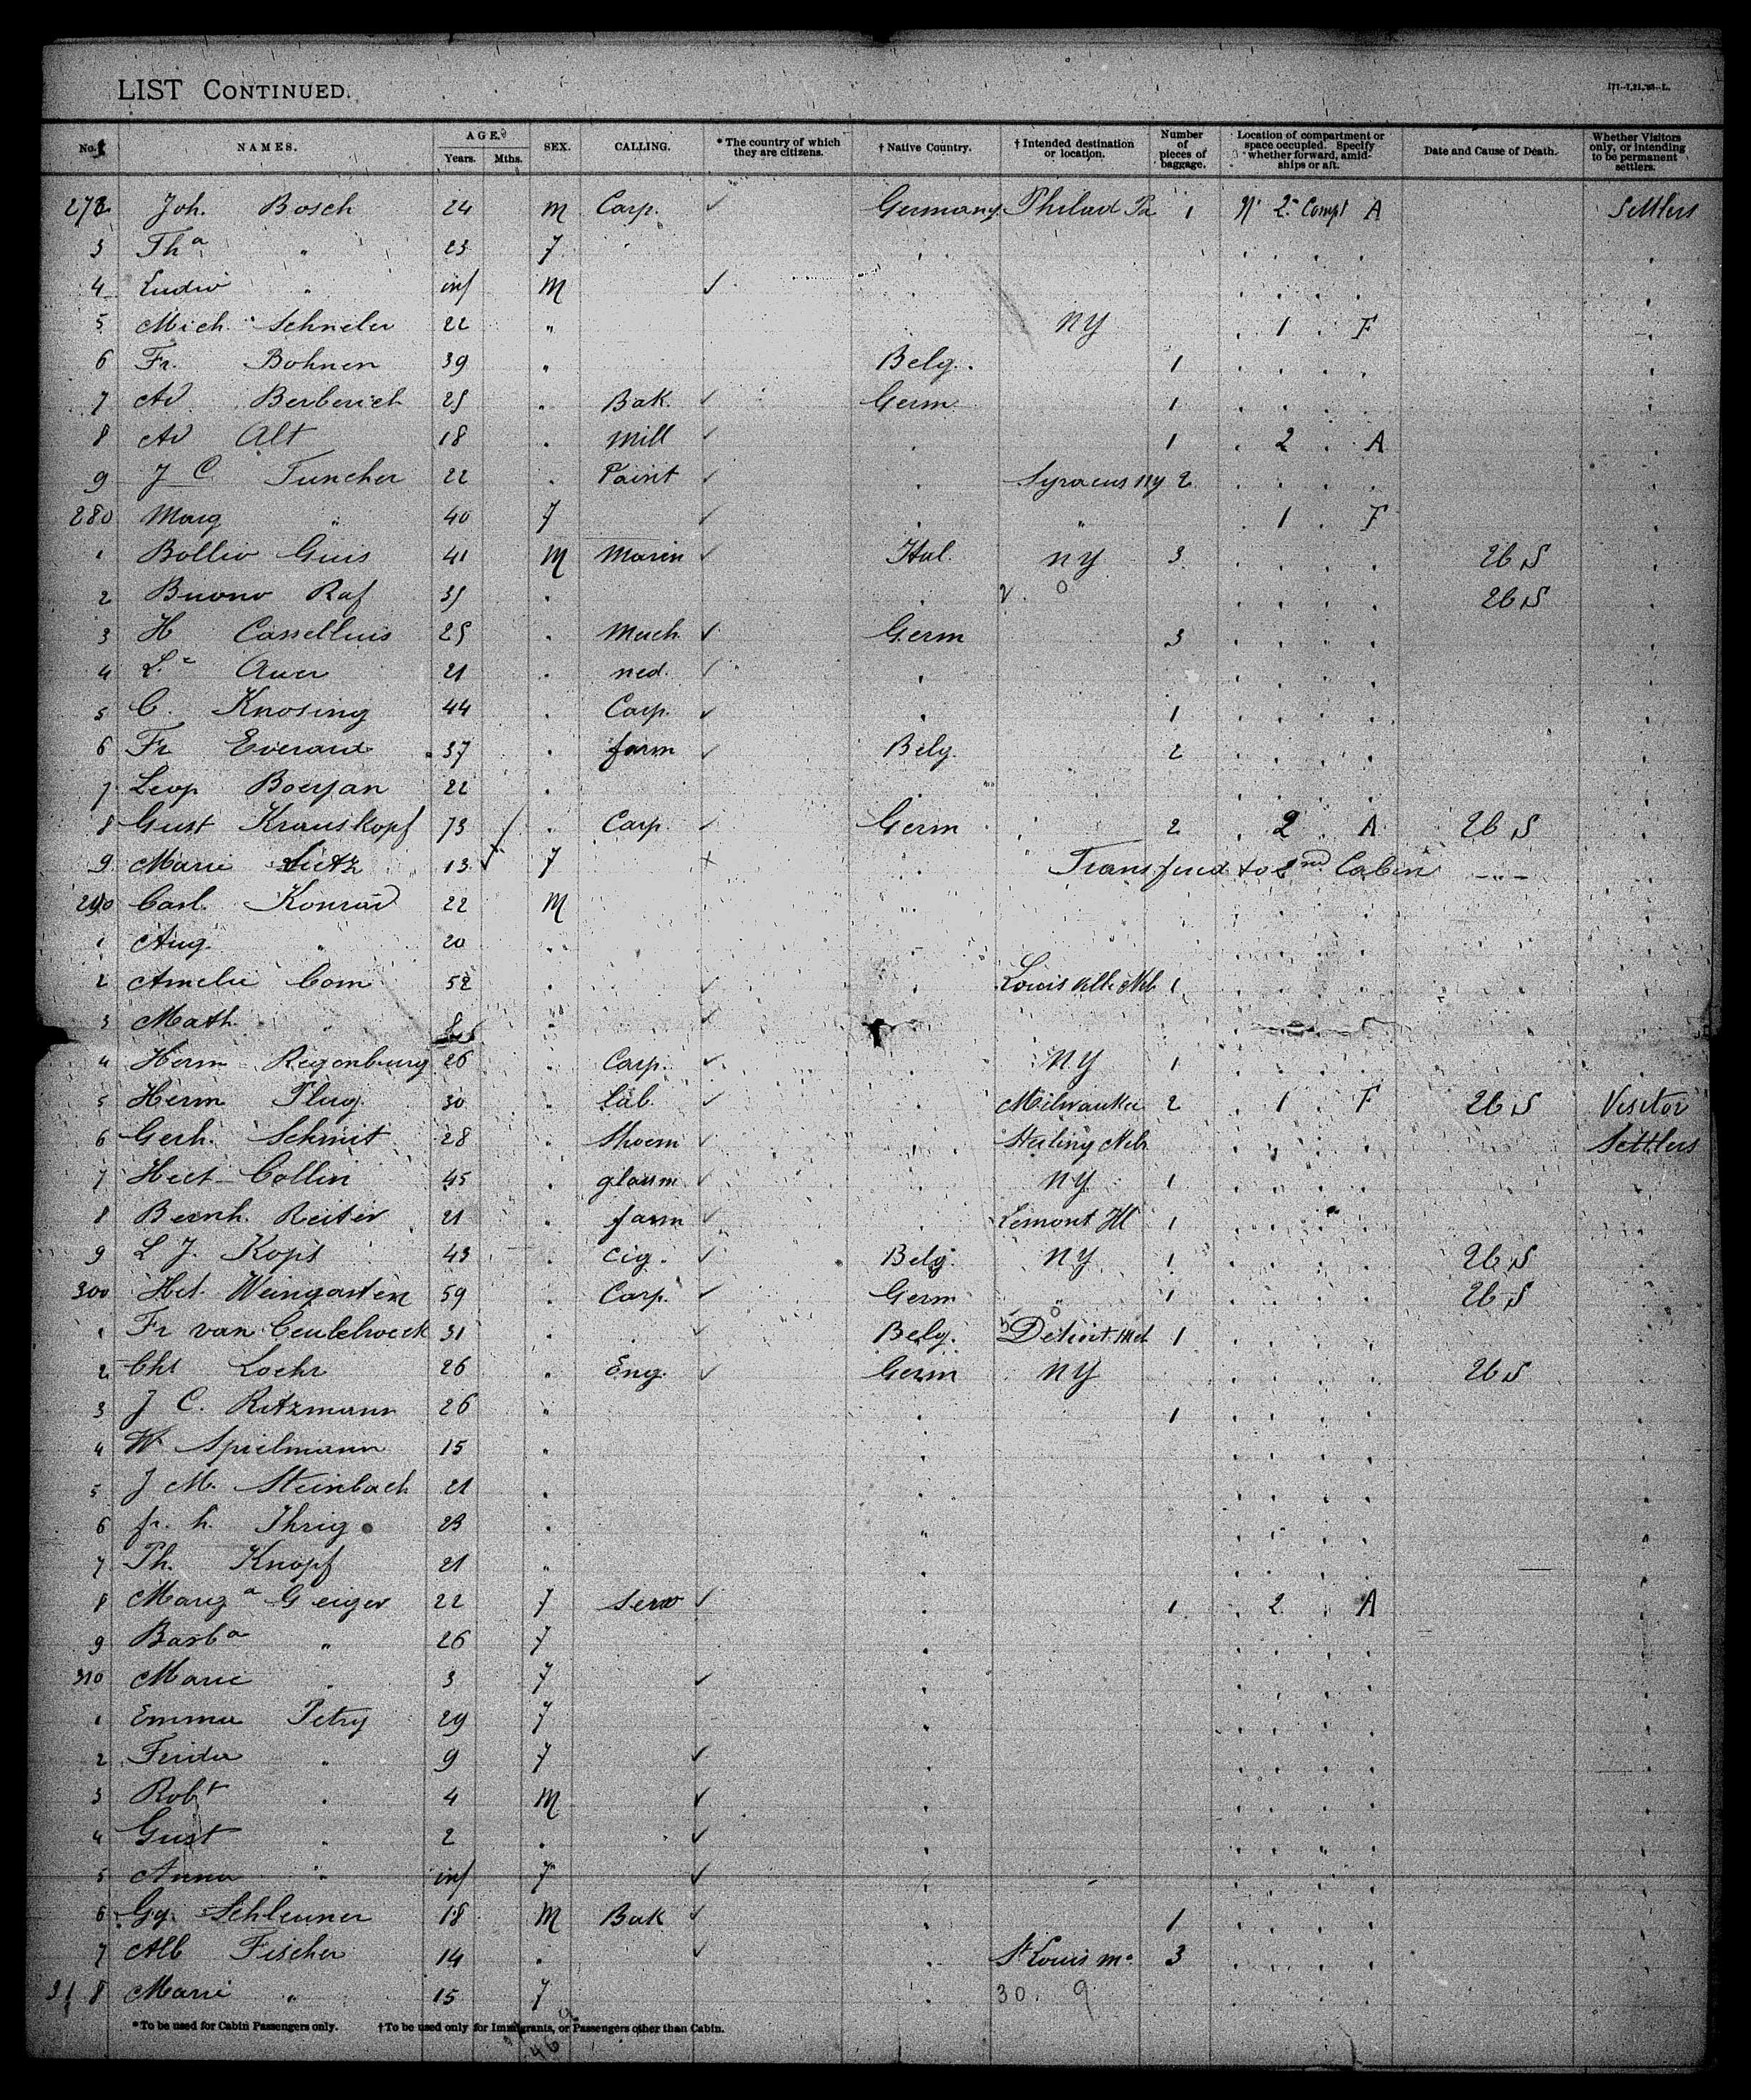 LIST CONTINUED.
No. NAMES. AGE. Years. Mths. SEX. CALLING. *The country of which they are citizens. †Native Country. †Intended destination or location. Number of pieces of baggage. Location of compartment or space occupied. Specify whether forward, amidships or aft. Date and Cause of Death. Whether Visitors only, or intending to be permanent settlers.
272 Joh. Bosch 24 M Carp. ✓ Germany Philad Pa 1 2 Compt A Settlers
3 Tha " 23 f
4 Ludw " inf M ✓
5 Mich. Schneler 22 " NY 1 F
6 Fr. Bohnen 39 " Belg. 1
7 Ad Berberich 25 " Bak. ✓ Germ 1
8 Ad Alt 18 " Mill ✓ 1 2 A
9 J C Tuncher 22 " Paint ✓ Syracus NY 2
280 Marg " 40 f ✓ " 1 F
1 Bollio Guis 41 M Marin ✓ Ital. NY 3 26 S
2 Buono Raf 35 " 26 S
3 H Cassellius 25 " Mech ✓ Germ 3
4 Auer 21 " ned. ✓
5 C. Knosing 44 " Carp. ✓ 1
6 Fr Everard 37 " farm ✓ Belg. 2
7 Leop Boeyan 22 "
8 Gust Krauskopf 73 " Carp. ✓ Germ 2 2 A 26 S
9 Marie Lietz 13 f x Transfered to 2nd Cabin
290 Carl Konrad 22 M
1 Aug. " 20 "
2 Amelie Com 52 " ✓ Louisville Neb 1
3 Math. " ✓
4 Herm Regenburg 26 " Carp. ✓ NY 1
5 Herm Plug 30 " Lab. ✓ Milwaukee 2 1 F 26 S Visitor
6 Gerh. Schmit 28 " Shoem ✓ Sterling Nebr Settlers
7 Hect Collin 45 " glasm ✓ NY 1
8 Bernh. Reiter 21 " farm ✓ Lemont Ill 1
9 L J. Kops 43 " Cig. ✓ Belg. NY 1 26 S
300 Hct. Weingarten 59 " Carp. ✓ Germ " 1 26 S
1 Fr van 31 " ✓ Belg. Detroit Mch 1
2 Chs Loehr 26 " Eng. ✓ Germ NY 26 S
3 J C. Ritzmann 26 " 1
4 W Spielmann 15 "
5 J M. Steinbach 21 "
6 fr. h. Ihrig 23 " "
7 Ph. Knopf 21 "
8 Marga Geiger 22 f Serv ✓ 1 2 A
9 Barba " 26 f
310 Marie " 3 f ✓
1 Emma Petry 29 f
2 Frida " 9 f ✓
3 Robt " 4 M ✓
4 Gust " 2 " ✓
5 Anna " inf f ✓
6 Gg. Schleuner 18 M Bak ✓ 1
7 Alb Fischer 14 " ✓ St Louis Mo 3
318 Marie " 15 f 30 9
*To be used for Cabin Passengers only. †To be used only for Immigrants, or Passengers other than Cabin.